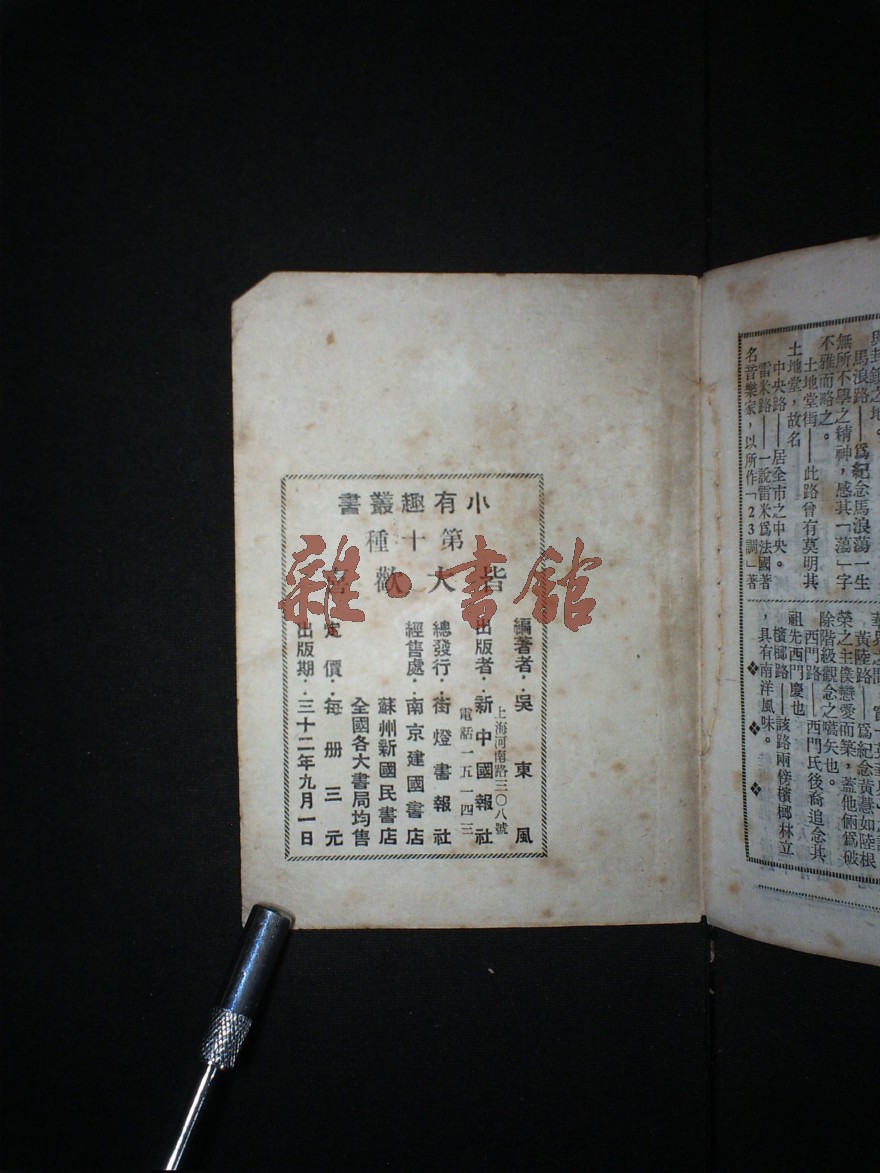 小有趣叢書
第十種
皆大歡喜
編著者·吳東風
上海河南路三〇八號
出版者·新中國報社
電話一五一四三
總發行·街燈書報社
經售處·南京建國書店
蘇州新國民書店
全國各大書局均售
定價·每册三元
出版期·三十二年九月一日
雜·書館
馬浪路——爲紀念馬浪蕩一生
無所不學之精神，感其「蕩」字
不雅而略之。
土地堂街——此路曾有莫明其
土地堂，故名
中央路——居全市之中央。
雷米路——一說雷米爲法國著
名音樂家，以所作「23調」著
黃陸路——爲紀念黃慧如陸根
榮之主僕戀愛而築，蓋他倆爲破
除階級觀念之嚆矢也。
西門路——西門氏後裔追念其
祖先西門慶也
檳榔路——該路兩傍檳榔林立
，具有南洋風味。